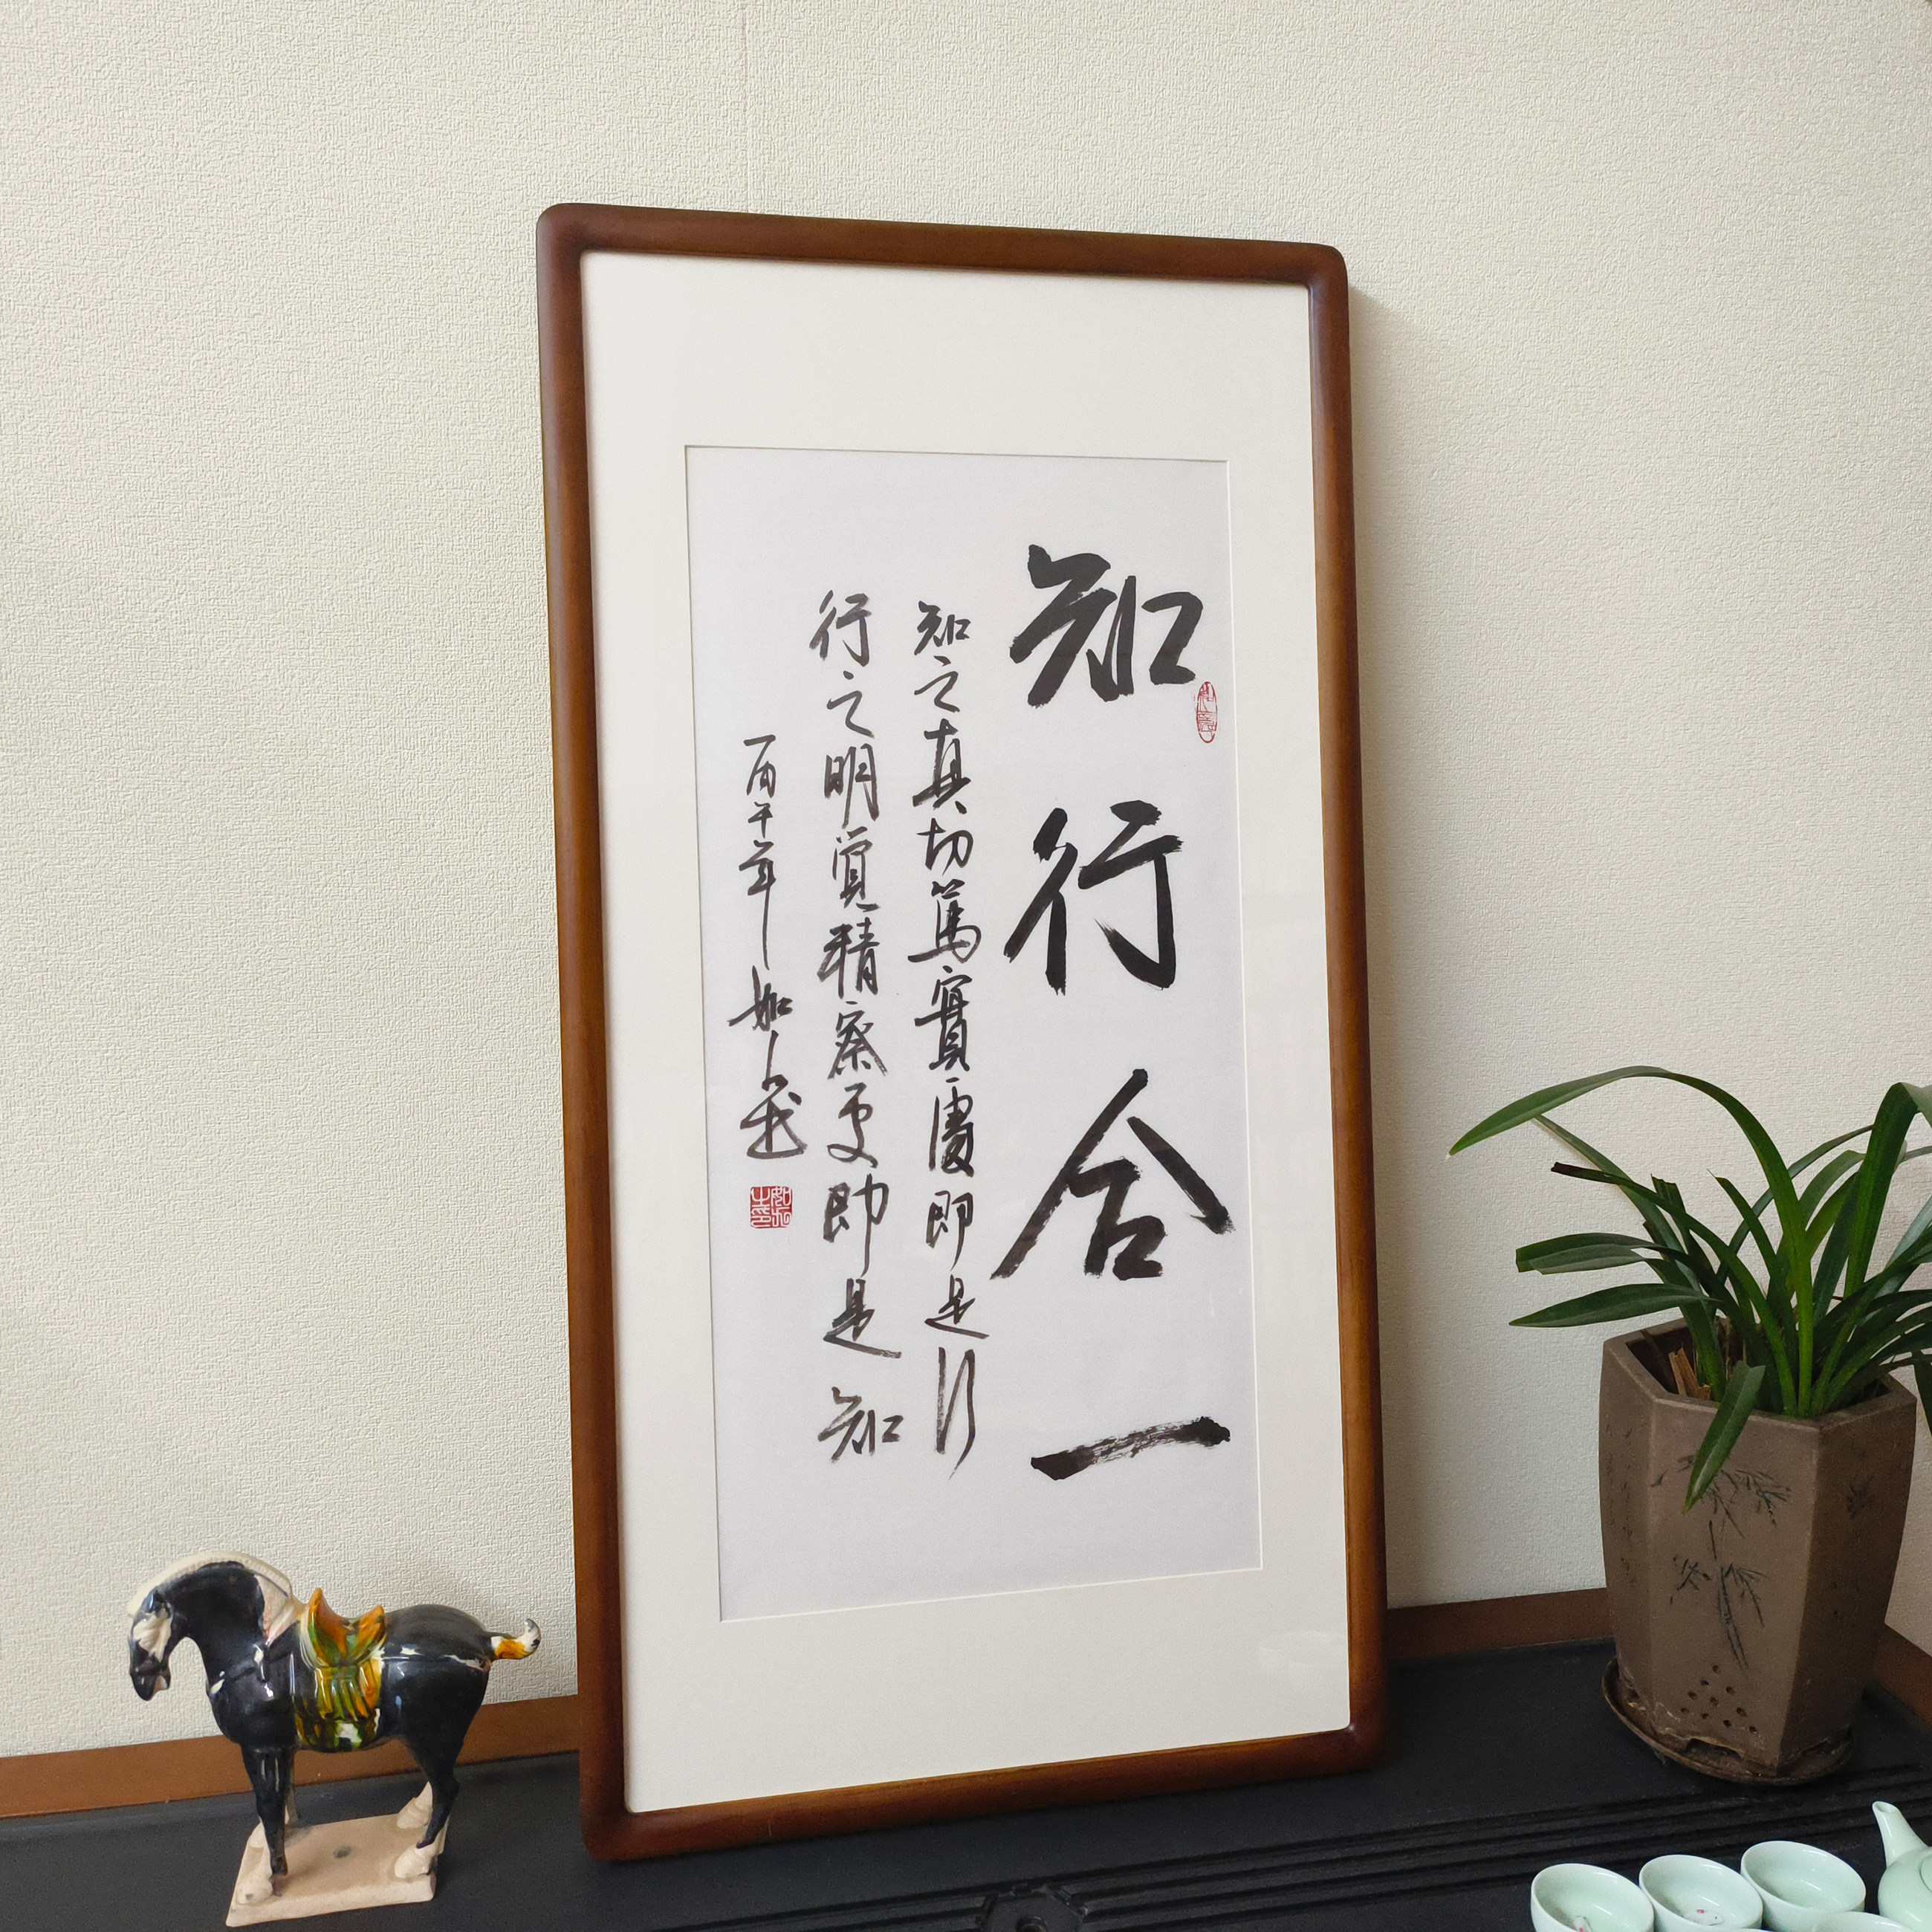 知行合一
知之真切篤實處即是行
行之明覺精察處即是知
丙午年 如